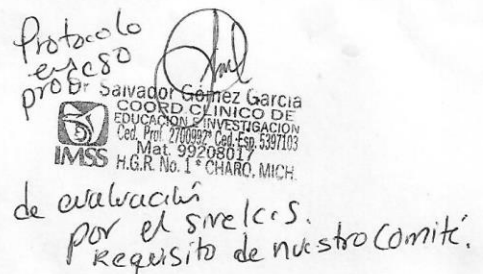 Protocolo
en c80
pro Dr. Salvador Gómez García
COORD CLINICO DE
EDUCACIÓN E INVESTIGACION
Ced. Prof. 2700992* Ced. Esp. 5397103
Mat. 99208017
IMSS H.G.R. No. 1 * CHARO, MICH.
de evaluación
por el sirelcis.
Requisito de nuestro Comité.